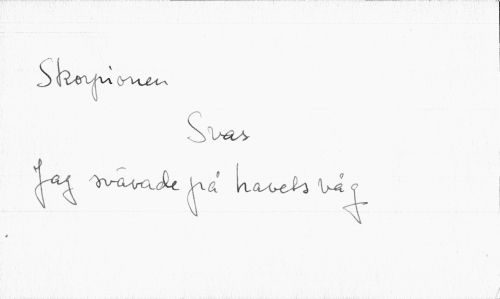 Skorpionen
Svas
Jag svävade på havets våg